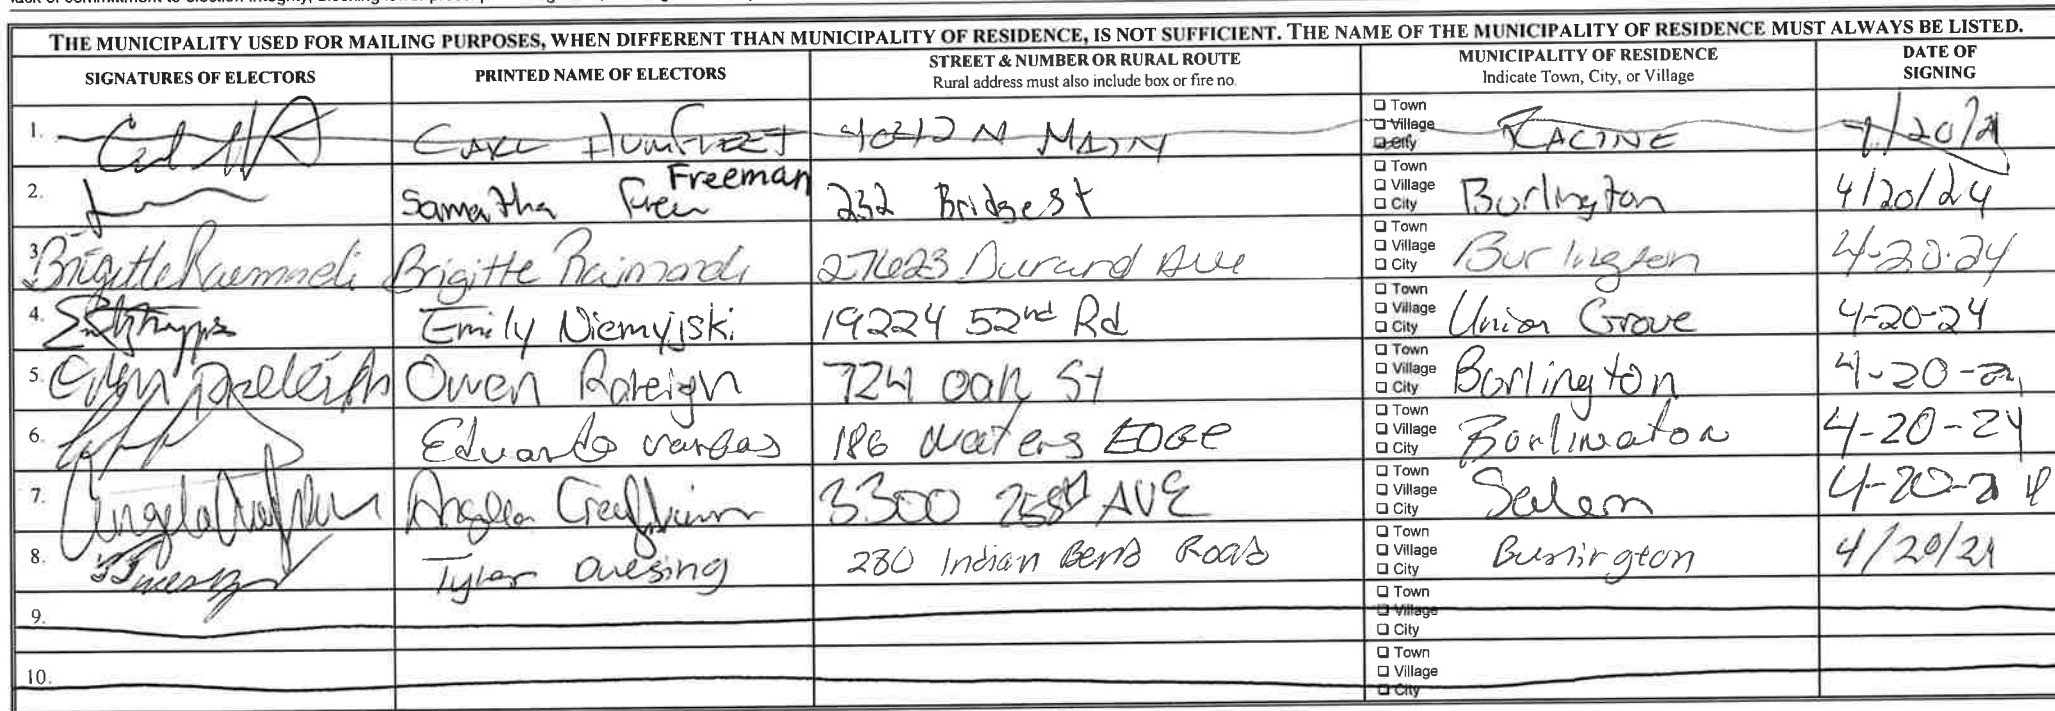 THE MUNICIPALITY USED FOR MAILING PURPOSES, WHEN DIFFERENT THAN MUNICIPALITY OF RESIDENCE, IS NOT SUFFICIENT. THE NAME OF THE MUNICIPALITY OF RESIDENCE MUST ALWAYS BE LISTED.
SIGNATURES OF ELECTORS PRINTED NAME OF ELECTORS STREET & NUMBER OR RURAL ROUTE Rural address must also include box or fire no. MUNICIPALITY OF RESIDENCE Indicate Town, City, or Village DATE OF SIGNING
1. N MAIN Town Village City RACINE
2. Samantha Freeman 232 Bridge St Town Village City Burlington 4/20/24
3. Brigitte Brigitte Raimondi 27623 Durand Ave Town Village City Burlington 4-20-24
4. Emily Niemyjski 19224 52nd Rd Town Village City Union Grove 4-20-24
5. Owen Raleigh 724 Oak St Town Village City Burlington 4-20-
6. Eduardo Vargas 186 Waters EDGE Town Village City 4-20-24
7. Angela Angela 3300 258th AVE Town Village City Salem 4-20-24
8. Tyler Duesing 280 Indian Bend Road Town Village City Burlington 4/20/24
9. Town Village City
10. Town Village City